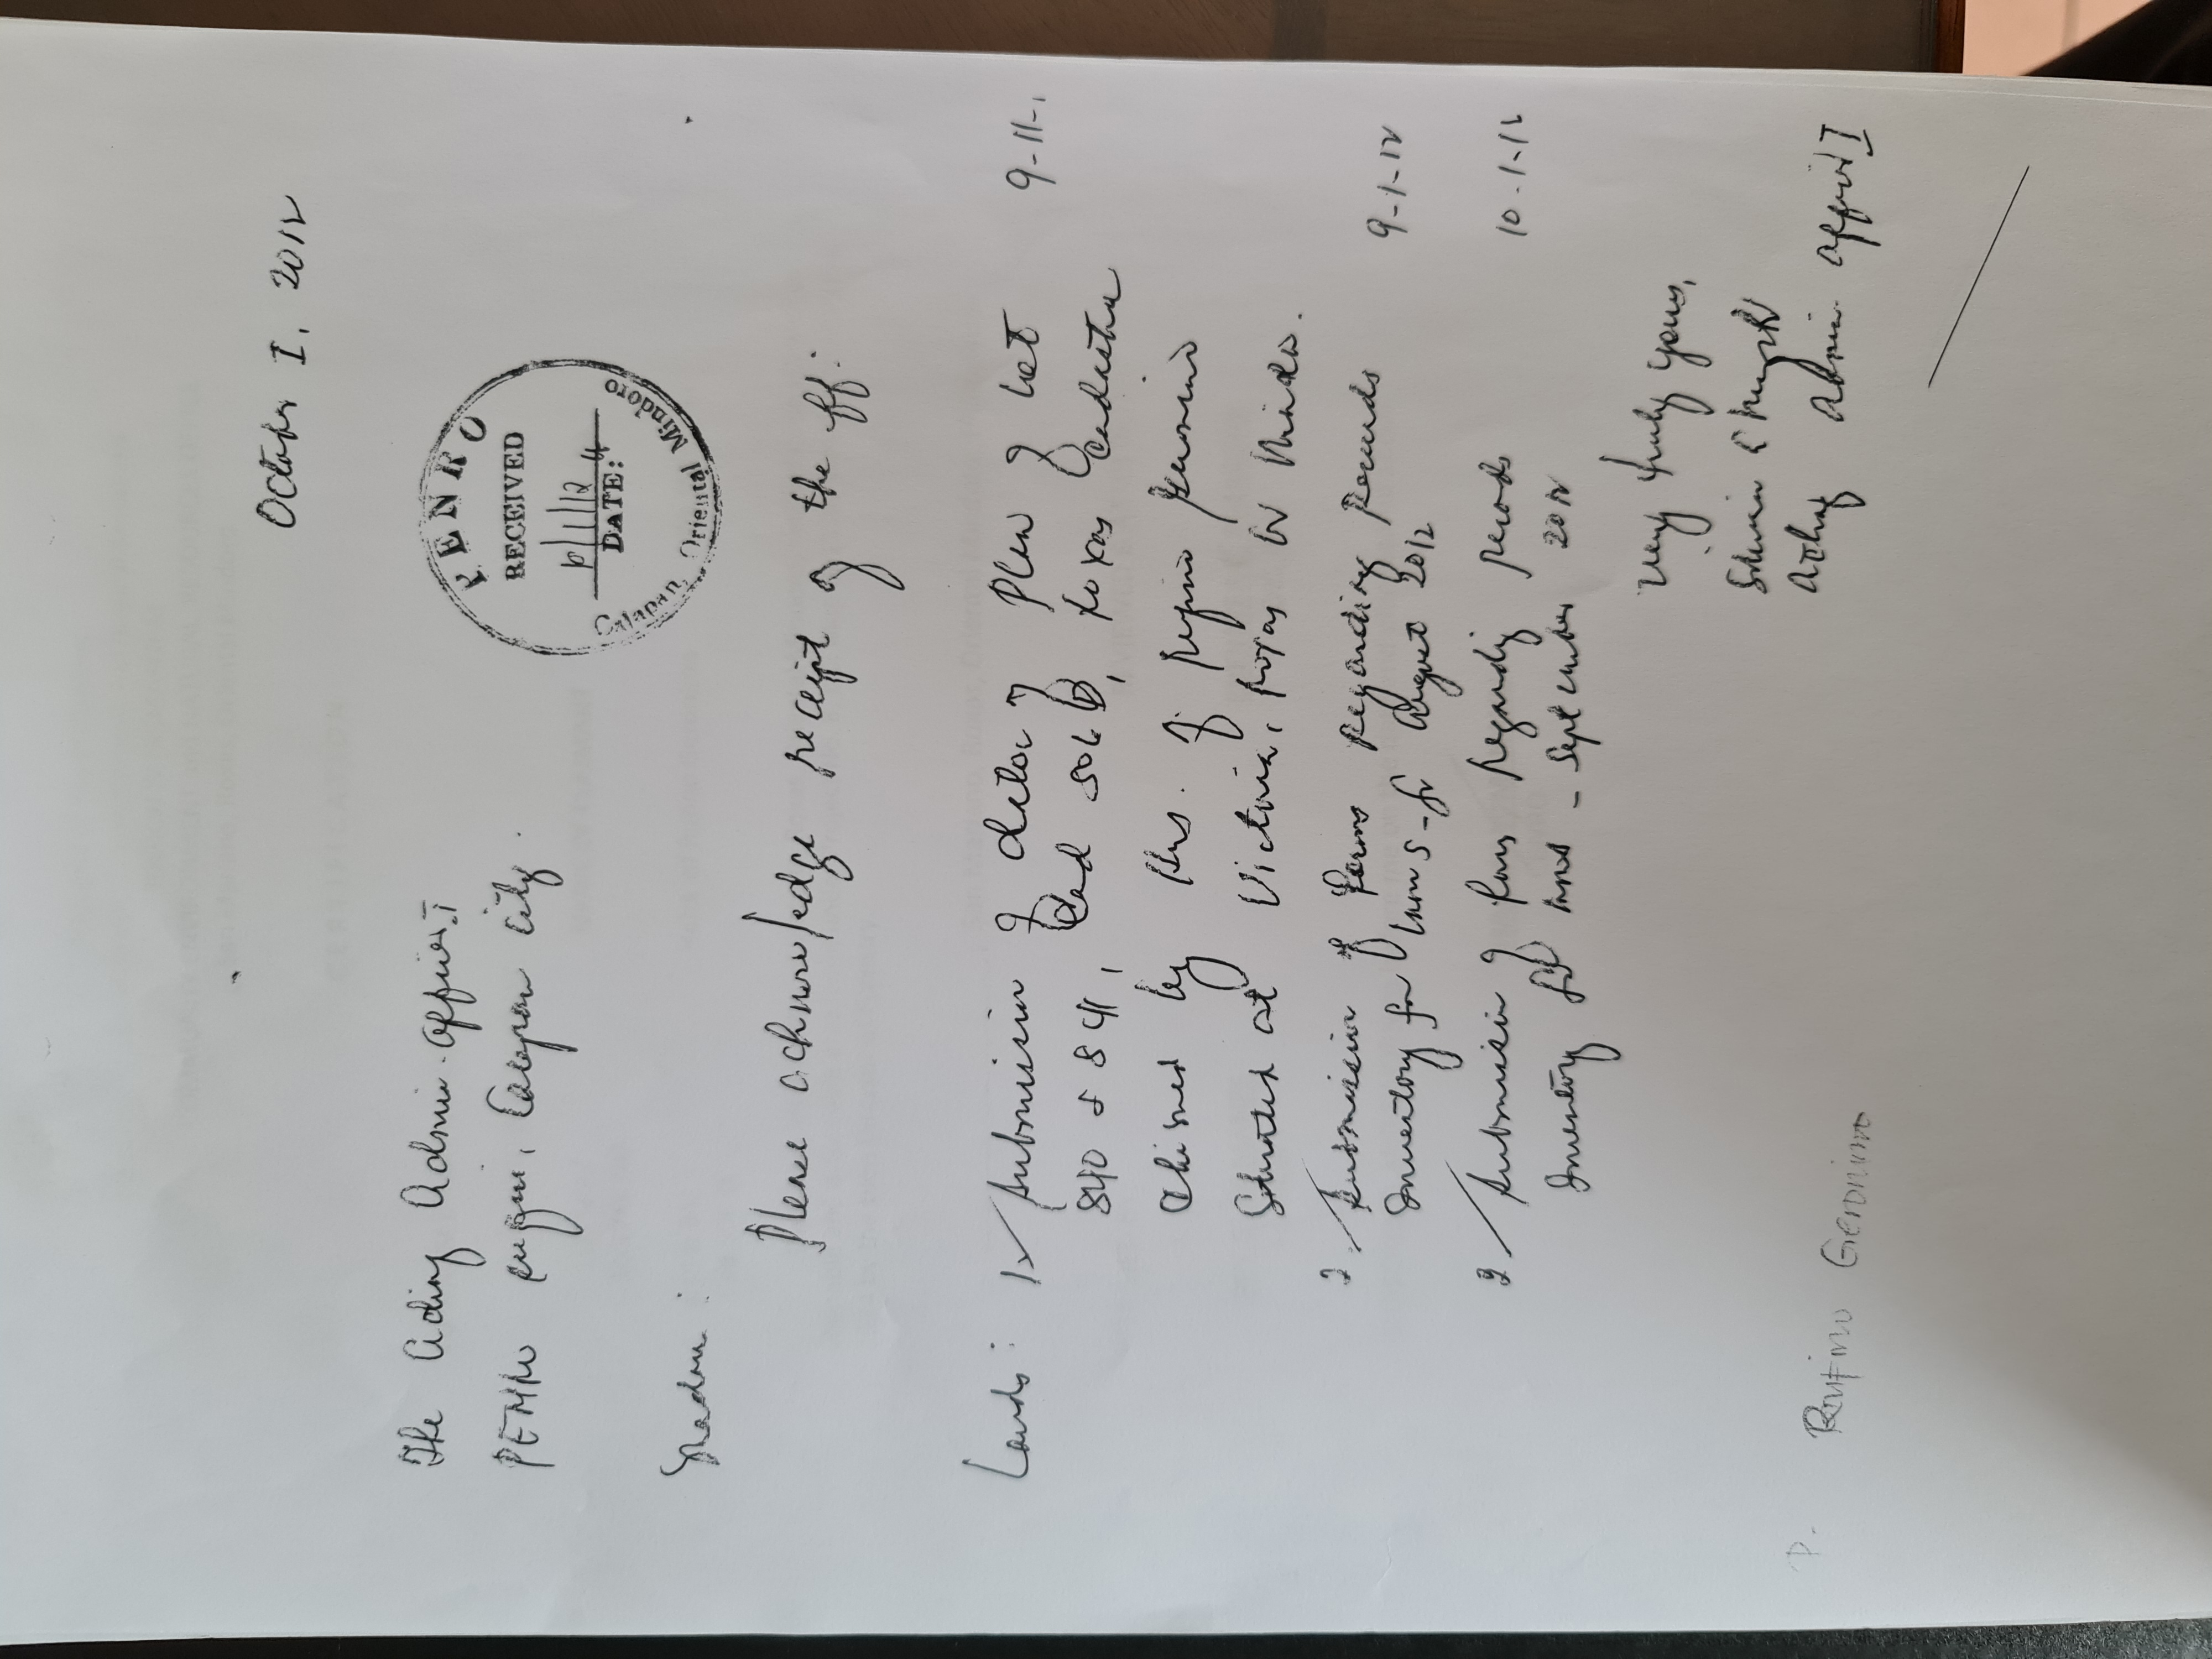 October I, 2012
PENRO
RECEIVED
10/1/12
DATE:
Calapan Oriental Mindoro
The Acting Admin. Officer I
PENRO Calapan City.
Madam :
Please acknowledge receipt of the ff:
Lands : 1. Submission of Plan of Lot 9-11-
840 & 841, Cad Roxas Cadastre
by Hrs. of Rufino Geronimo
Situated at Victoria, Roxas Or Mindo.
2. Submission of Forms Regarding Records 9-1-12
Inventory for August 2012
Submission of Forms Regarding Records 10-1-12
Inventory - September 2012
Very truly yours,
Acting Admin Officer I
P. Rufino Geronimo